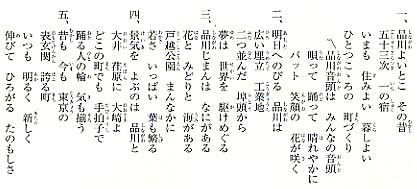 一、品川よいとこ その昔
五十三次 一の宿
いまも 住みよい 暮しよい
ひとつこころの 町づくり
〽品川音頭は みんなの音頭
唄って 踊って 晴れやかに
パット 笑顔の 花が咲く
二、明日へのびる 品川は
広い埋立 工業地
二つ並んだ 埠頭から
夢は 世界を 駆けめぐる
三、品川じまんは なにがある
花と みどりと 海がある
戸越公園 まんなかに
若さ いっぱい 葉も繁る
四、景気を よぶのは 品川と
大井 荏原に 大崎よ
どこの町でも 手拍子で
踊る人の輪 気も揃う
五、昔も 今も 東京の
表玄関 誇る町
いつも 明るく 新しく
伸びて ひろがる たのもしさ